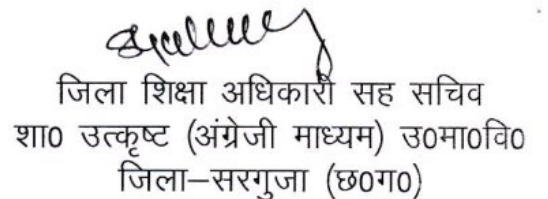 जिला शिक्षा अधिकारी सह सचिव
शा0 उत्कृष्ट (अंग्रेजी माध्यम) उ0मा0वि0
जिला–सरगुजा (छ0ग0)